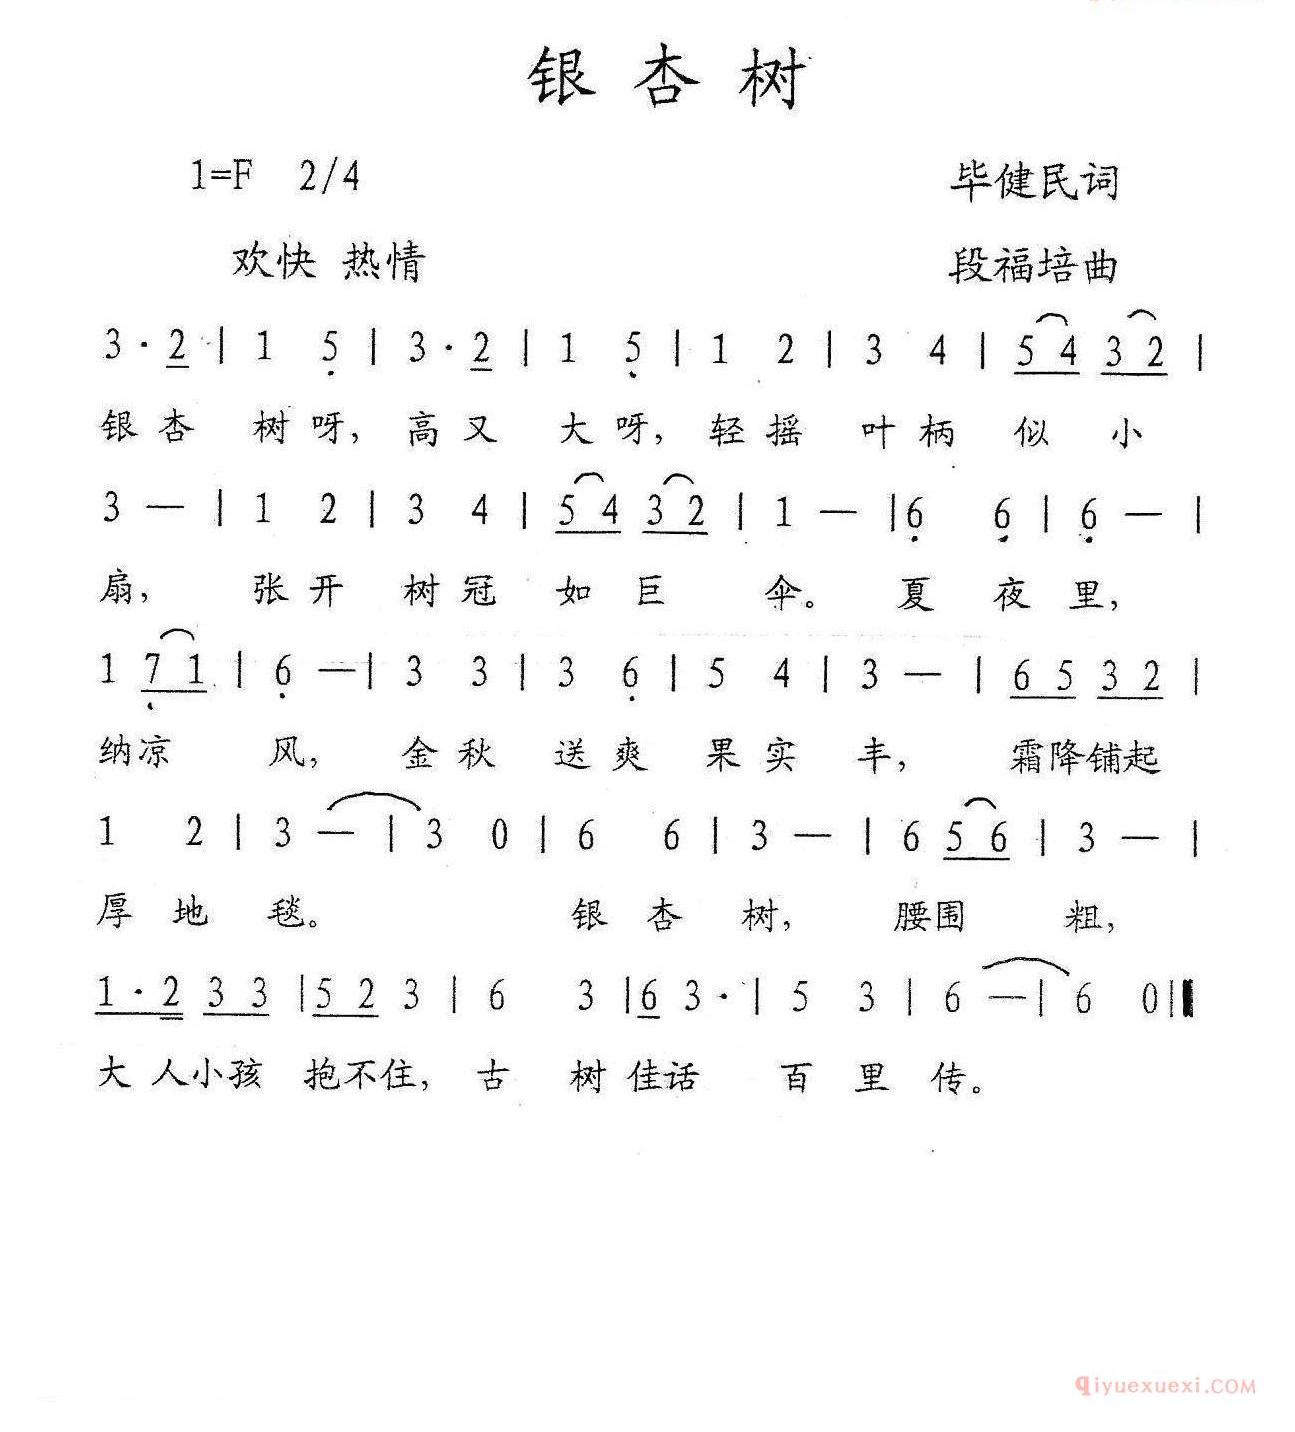 银杏树
1=F 2/4 毕健民词
欢快 热情 段福培曲
3·2 | 1 5 | 3·2 | 1 5 | 1 2 | 3 4 | 5 4 3 2 |
银杏 树呀, 高又 大呀, 轻摇 叶柄 似 小
3 — | 1 2 | 3 4 | 5 4 3 2 | 1 — | 6 6 | 6 — |
扇, 张开 树冠 如巨 伞。 夏 夜 里,
1 7 1 | 6 — | 3 3 | 3 6 | 5 4 | 3 — | 6 5 3 2 |
纳凉 风, 金秋 送爽 果实 丰, 霜降铺起
1 2 | 3 — | 3 0 | 6 6 | 3 — | 6 5 6 | 3 — |
厚 地 毯。 银 杏 树, 腰围 粗,
1·2 3 3 | 5 2 3 | 6 3 | 6 3· | 5 3 | 6 — | 6 0 ‖
大 人小孩 抱不住, 古 树 佳话 百 里 传。
qiyuexuexi.COM